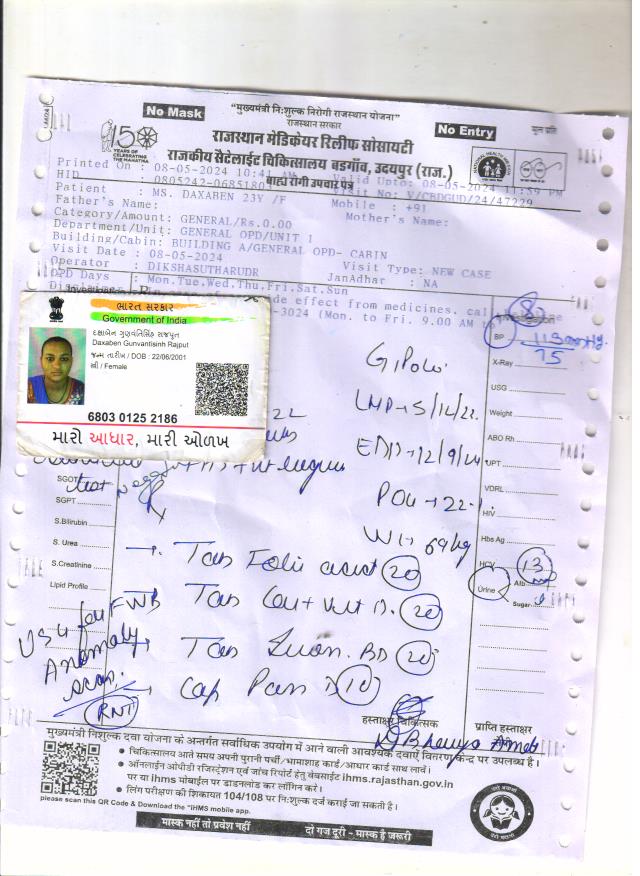 No Mask
"मुख्यमंत्री निःशुल्क निरोगी राजस्थान योजना"
राजस्थान सरकार
No Entry
150
YEARS OF
CELEBRATING
THE MAHATMA
राजस्थान मेडिकेयर रिलीफ सोसायटी
राजकीय सैटेलाईट चिकित्सालय बडगाँव, उदयपुर (राज.)
बाह्य रोगी उपचार पत्र
Printed On : 08-05-2024 10:41 AM Valid Upto: 08-05-2024 11:59 PM
HID : 0805242-0685180 Visit No: V/CBDGUD/24/47229
Patient : MS. DAXABEN 23Y /F Mobile : +91
Father's Name: Mother's Name:
Category/Amount: GENERAL/Rs.0.00
Department/Unit: GENERAL OPD/UNIT 1
Building/Cabin: BUILDING A/GENERAL OPD- CABIN
Visit Date : 08-05-2024 Visit Type: NEW CASE
Operator : DIKSHASUTHARUDR JanAdhar : NA
OPD Days : Mon.Tue,Wed,Thu,Fri.Sat.Sun
side effect from medicines. cal
-3024 (Mon. to Fri. 9.00 AM to
ભારત સરકાર
Government of India
દક્ષાબેન ગુણવંતિસિંહ રાજપૂત
Daxaben Gunvantisinh Rajput
જન્મ તારીખ / DOB : 22/06/2001
સ્ત્રી / Female
6803 0125 2186
મારો આધાર, મારી ઓળખ
BP 113 mmHg
75
X-Ray
USG
Weight
ABO Rh
UPT
VDRL
HIV
Hbs Ag
HCV
13
Urine Alb
Sugar
SGOT
SGPT
S.Bilirubin
S. Urea
S.Creatinine
Lipid Profile
EDD → 12/9/24
Wt → 69kg
→ Tab Folic acid 20
Tab 20
Tab BD 20
→ Cap Pan D 10
USG for FWB
Anomaly
scan.
RNT
हस्ताक्षर चिकित्सक
प्राप्ति हस्ताक्षर
मुख्यमंत्री निशुल्क दवा योजना के अन्तर्गत सर्वाधिक उपयोग में आने वाली आवश्यक दवाऐं वितरण केन्द्र पर उपलब्ध है।
• चिकित्सालय आते समय अपनी पुरानी पर्ची/भामाशाह कार्ड/आधार कार्ड साथ लावें।
• ऑनलाईन ओपीडी रजिस्ट्रेशन एवं जांच रिपोर्ट हेतु वेबसाईट ihms.rajasthan.gov.in
पर या ihms मोबाईल पर डाउनलोड कर लॉगिन करें।
• लिंग परीक्षण की शिकायत 104/108 पर निःशुल्क दर्ज कराई जा सकती है।
please scan this QR Code & Download the "IHMS mobile app.
मास्क नहीं तो प्रवेश नहीं
दो गज दूरी - मास्क है जरूरी